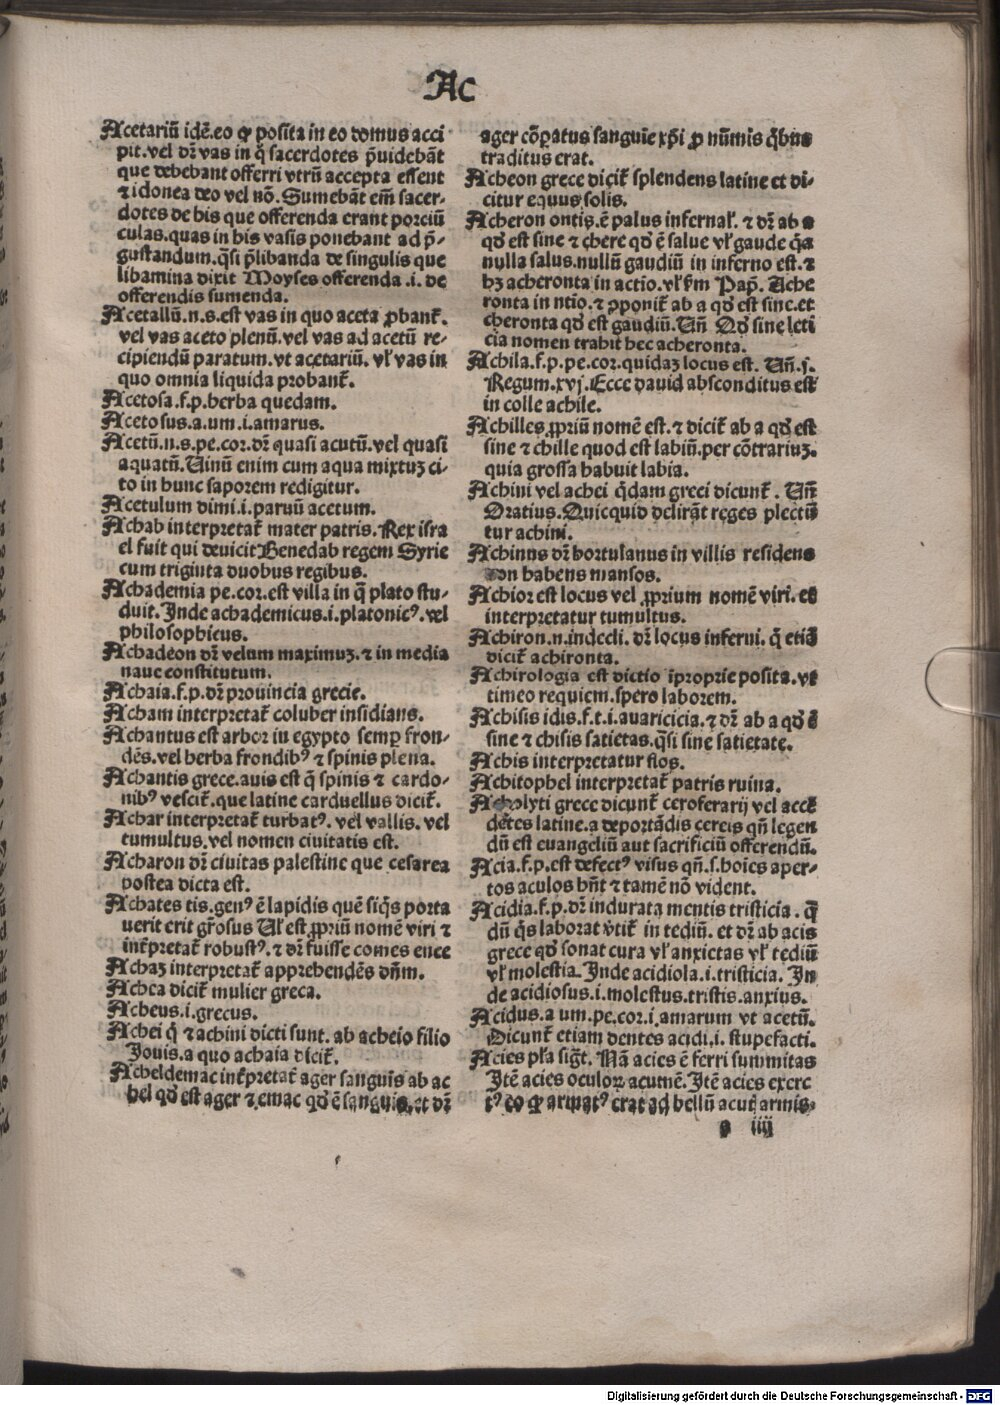 Ac
Acetariū idē.eo ꝙ posita in eo domus acci
pit.vel dr̄ vas in q̄ sacerdotes p̄uidebāt
que debebant offerri vtrū accepta essent
⁊ idonea deo vel nō.Sumebāt em̄ sacer-
dotes de his que offerenda erant porciū
culas.quas in his vasis ponebant ad p̄-
gustandum.q̄si p̄libanda de singulis que
libamina dixit Moyses offerenda .i. de
offerendis sumenda.
Acetallū.n.s.est vas in quo aceta ꝓbant̄.
vel vas aceto plenū.vel vas ad acetū re-
cipiendū paratum.vt acetariū. vl̄ vas in
quo omnia liquida probant̄.
Acetosa.f.p.herba quedam.
Acetosus.a.um.i.amarus.
Acetū.n.s.pe.cor.dr̄ quasi acutū.vel quasi
aquatū.Uinū enim cum aqua mixtuꝫ ci-
to in hunc saporem redigitur.
Acetulum dimi.i.paruū acetum.
Achab interpretat̄ mater patris.Rex isra
el fuit qui deuicit Benedab regem Syrie
cum triginta duobus regibus.
Achademia pe.cor.est villa in q̄ plato stu-
duit.Inde achademicus.i.platonicꝰ.vel
philosophicus.
Achadeon dr̄ velum maximuꝫ.⁊ in media
naue constitutum.
Achaia.f.p.dr̄ prouincia grecie.
Acham interpretat̄ coluber insidians.
Achantus est arbor in egypto semꝑ fron-
dēs.vel herba frondibꝰ ⁊ spinis plena.
Achantis grece.auis est q̄ spinis ⁊ cardo-
nibꝰ vescit̄.que latine carduellus dicit̄.
Achar interpretat̄ turbatꝰ. vel vallis. vel
tumultus.vel nomen ciuitatis est.
Acharon dr̄ ciuitas palestine que cesarea
postea dicta est.
Achates tis.genꝰ ē lapidis quē siq̄s porta
uerit erit gr̄osus Ul̄ est ꝓpriū nomē viri ⁊
int̄pretat̄ robustꝰ.⁊ dr̄ fuisse comes enee
Achaz interpretat̄ apprehendēs dn̄m.
Achea dicit̄ mulier greca.
Acheus.i.grecus.
Achei q̄ ⁊ achini dicti sunt. ab acheio filio
Jouis.a quo achaia dicit̄.
Acheldemac int̄pretat̄ ager sanguīs ab ac
hel qd̄ est ager ⁊ emac qd̄ ē sanguis.et dr̄
ager cōꝑatus sanguīe xp̄i ꝓ nūmis q̄bus
traditus erat.
Acheon grece dicit̄ splendens latine et di-
citur equus solis.
Acheron ontis.ē palus infernal̄. ⁊ dr̄ ab a
qd̄ est sine ⁊ chere qd̄ ē salue vl̄ gaude q̄a
nulla salus.nullū gaudiū in inferno est.⁊
hꝫ acheronta in actio.vl̄ s̄m Pap̄. Ache
ronta in ntio.⁊ ꝓponit̄ ab a qd̄ est sine.et
cheronta qd̄ est gaudiū.Un̄ Qd̄ sine leti
cia nomen trahit hec acheronta.
Achila.f.p.pe.cor.quidaꝫ locus est. Un̄.j.
Regum.xvj.Ecce dauid absconditus est
in colle achile.
Achilles ꝓpriū nomē est.⁊ dicit̄ ab a qd̄ est
sine ⁊ chille quod est labiū.per cōtrariuꝫ.
quia grossa habuit labia.
Achini vel achei q̄dam greci dicunt̄ . Un̄
Oratius.Quicquid delirāt reges plectū
tur achini.
Achinns dr̄ hortulanus in villis residens
non habens mansos.
Achior est locus vel ꝓprium nomē viri. et
interpretatur tumultus.
Achiron.n.indecli. dr̄ locus inferni. q̄ etiā
dicit̄ achironta.
Achirologia est dictio īproprie posita.vt
timeo requiem.spero laborem.
Achisis idis.f.t.i.auaricicia.⁊ dr̄ ab a qd̄ ē
sine ⁊ chisis satietas.q̄si sine satietate.
Achis interpretatur flos.
Achitophel interpretat̄ patris ruina.
Acholyti grece dicunt̄ ceroferarij vel accē
dētes latine.a deportādis cereis qn̄ legen
dū est euangeliū aut sacrificiū offerendū.
Acia.f.p.est defectꝰ visus qn̄.s.hoīes aper-
tos aculos hn̄t ⁊ tamē nō vident.
Acidia.f.p.dr̄ indurata mentis tristicia . q̄
dū q̄s laborat v̄tit̄ in tediū. et dr̄ ab acis
grece qd̄ sonat cura vl̄ anxietas vl̄ tediū
vl̄ molestia.Inde acidiola.i.tristicia. In
de acidiosus.i.molestus.tristis.anxius.
Acidus.a um.pe.cor.i.amarum vt acetū.
Dicunt̄ etiam dentes acidi.i. stupefacti.
Acies pl̄a siḡt. Nā acies ē ferri summitas
Itē acies oculoꝝ acumē.Itē acies exerc
tꝰ eo ꝙ armatꝰ erat ad bellū acut armis.
a iiij
Digitalisierung gefördert durch die Deutsche Forschungsgemeinschaft - DFG